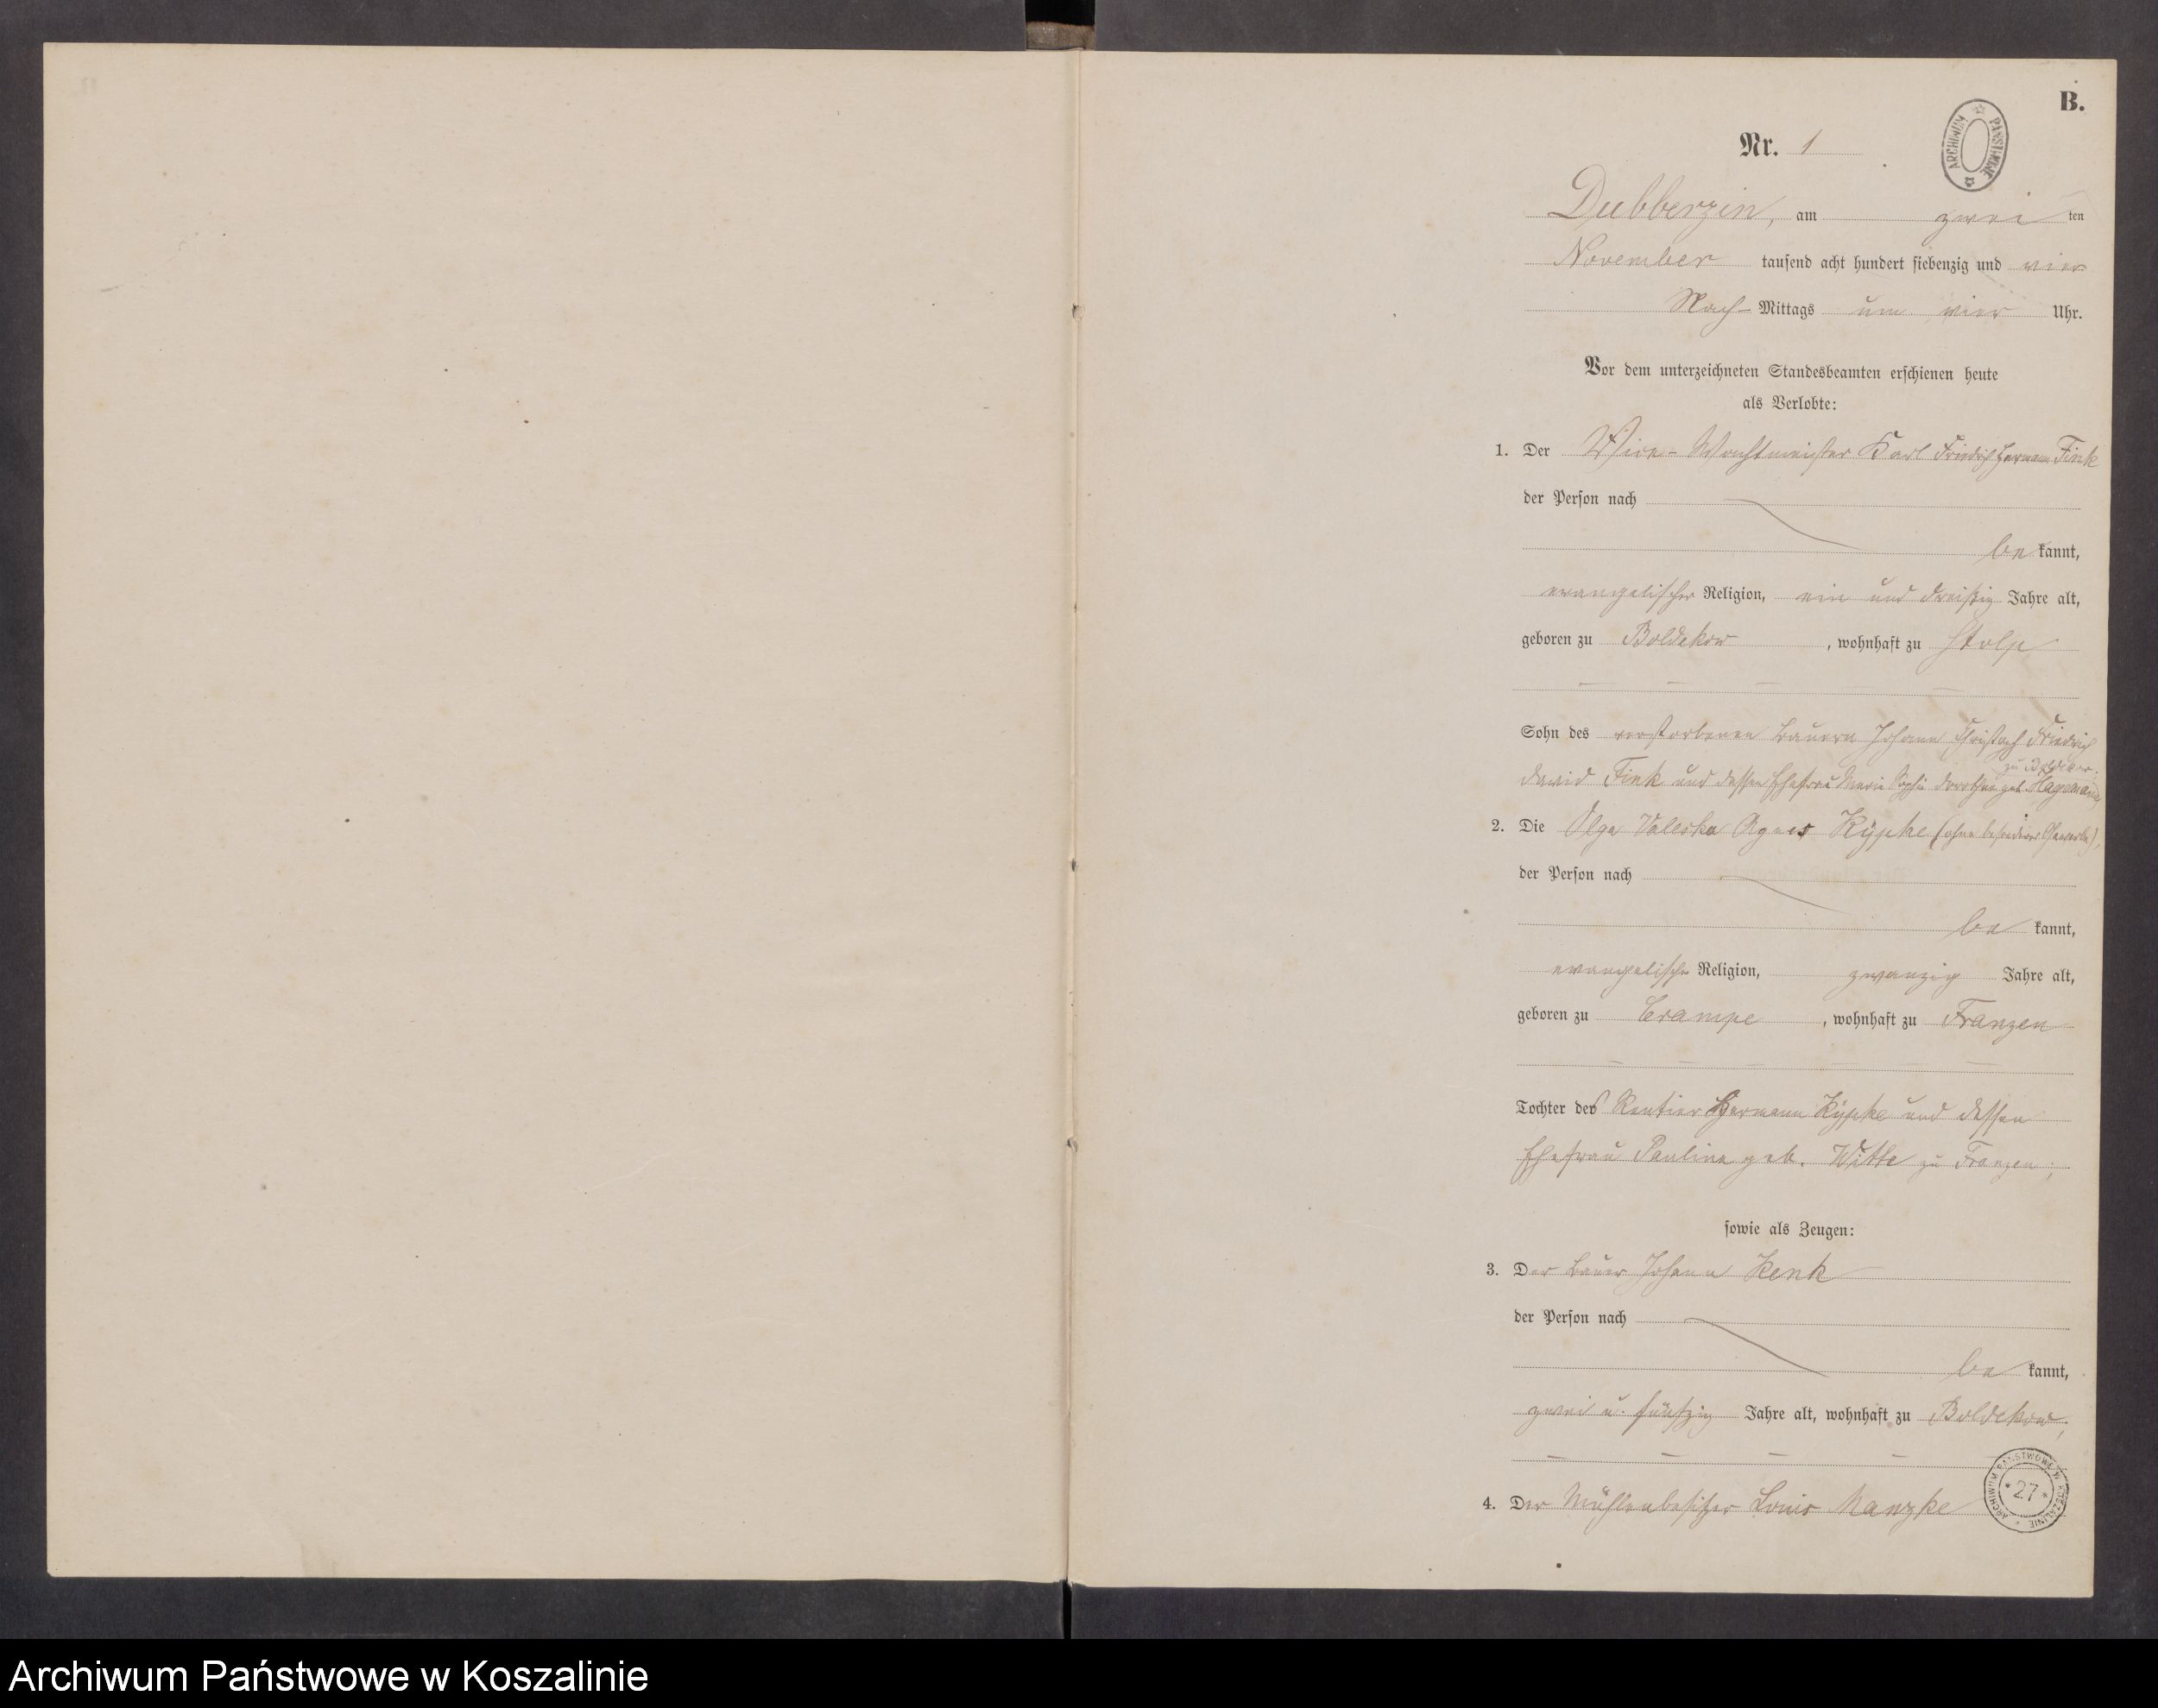 B.
Nr. 1
ARCHIWUM PAŃSTWOWE
Dubberzin, am zwei ten
November tausend acht hundert siebenzig und vier
Nach-Mittags um vier Uhr.
Vor dem unterzeichneten Standesbeamten erschienen heute
als Verlobte:
1. Der Vice-Wachtmeister Karl Friedrich Hermann Fink
der Person nach
be kannt,
evangelischer Religion, ein und dreißig Jahre alt,
geboren zu Boldekow, wohnhaft zu Stolp
Sohn des verstorbenen Bauern Johann Christoph Friedrich
zu Boldekow.
David Fink und dessen Ehefrau Marie Sophie Dorothee geb. Hagemann
2. Die Olga Valeska Agnes Kypke (ohne besonderes Gewerbe),
der Person nach
be kannt,
evangelischer Religion, zwanzig Jahre alt,
geboren zu Crampe, wohnhaft zu Franzen
Tochter des Rentier Hermann Kypke und dessen
Ehefrau Pauline geb. Witte zu Franzen;
sowie als Zeugen:
3. Der Bauer Johann Kenk
der Person nach
be kannt,
zwei u. fünfzig Jahre alt, wohnhaft zu Boldekow,
4. Der Mühlenbesitzer Louis Manzke
ARCHIWUM PAŃSTWOWE W KOSZALINIE
* 27 *
Archiwum Państwowe w Koszalinie